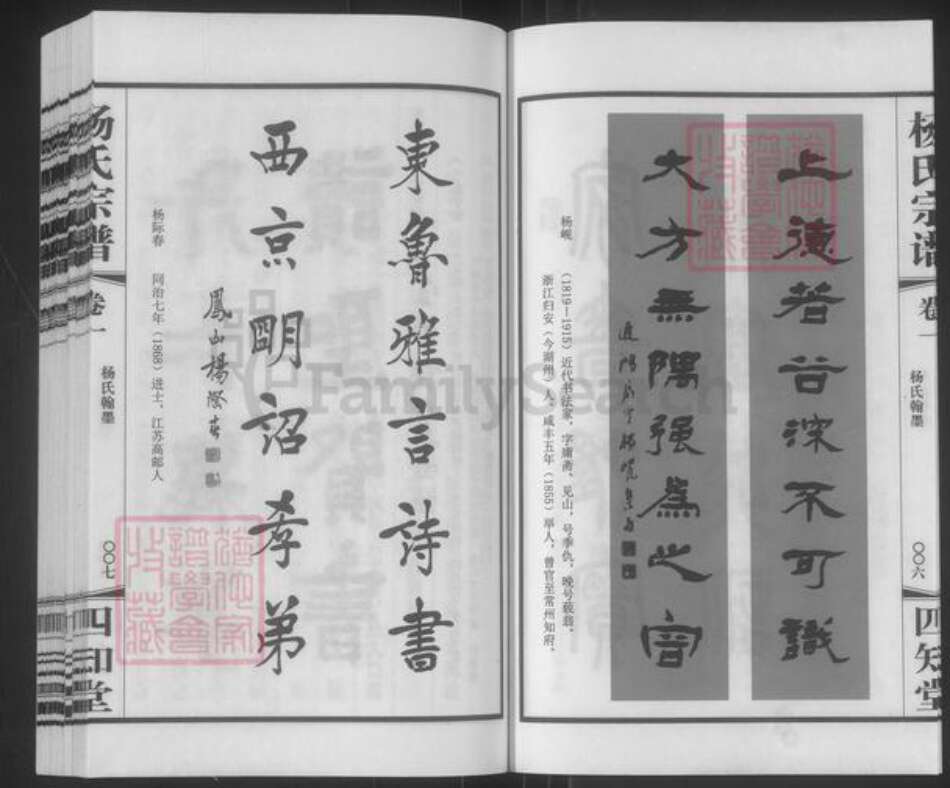 杨氏宗谱
卷一
杨氏翰墨
〇〇六
四知堂
上德若谷深不可識
大方無隅强為之容
杨岘
(1819—1915)近代书法家，字庸斋、见山，号季仇，晚号藐翁，
浙江归安（今湖州）人。咸丰五年（1855）举人，曾官至常州知府。
東魯雅言詩書
西京明詔孝弟
鳳山楊際春
杨际春 同治七年（1868）进士，江苏高邮人
杨氏宗谱
卷一
杨氏翰墨
〇〇七
四知堂
譜學會
收藏
FamilySearch